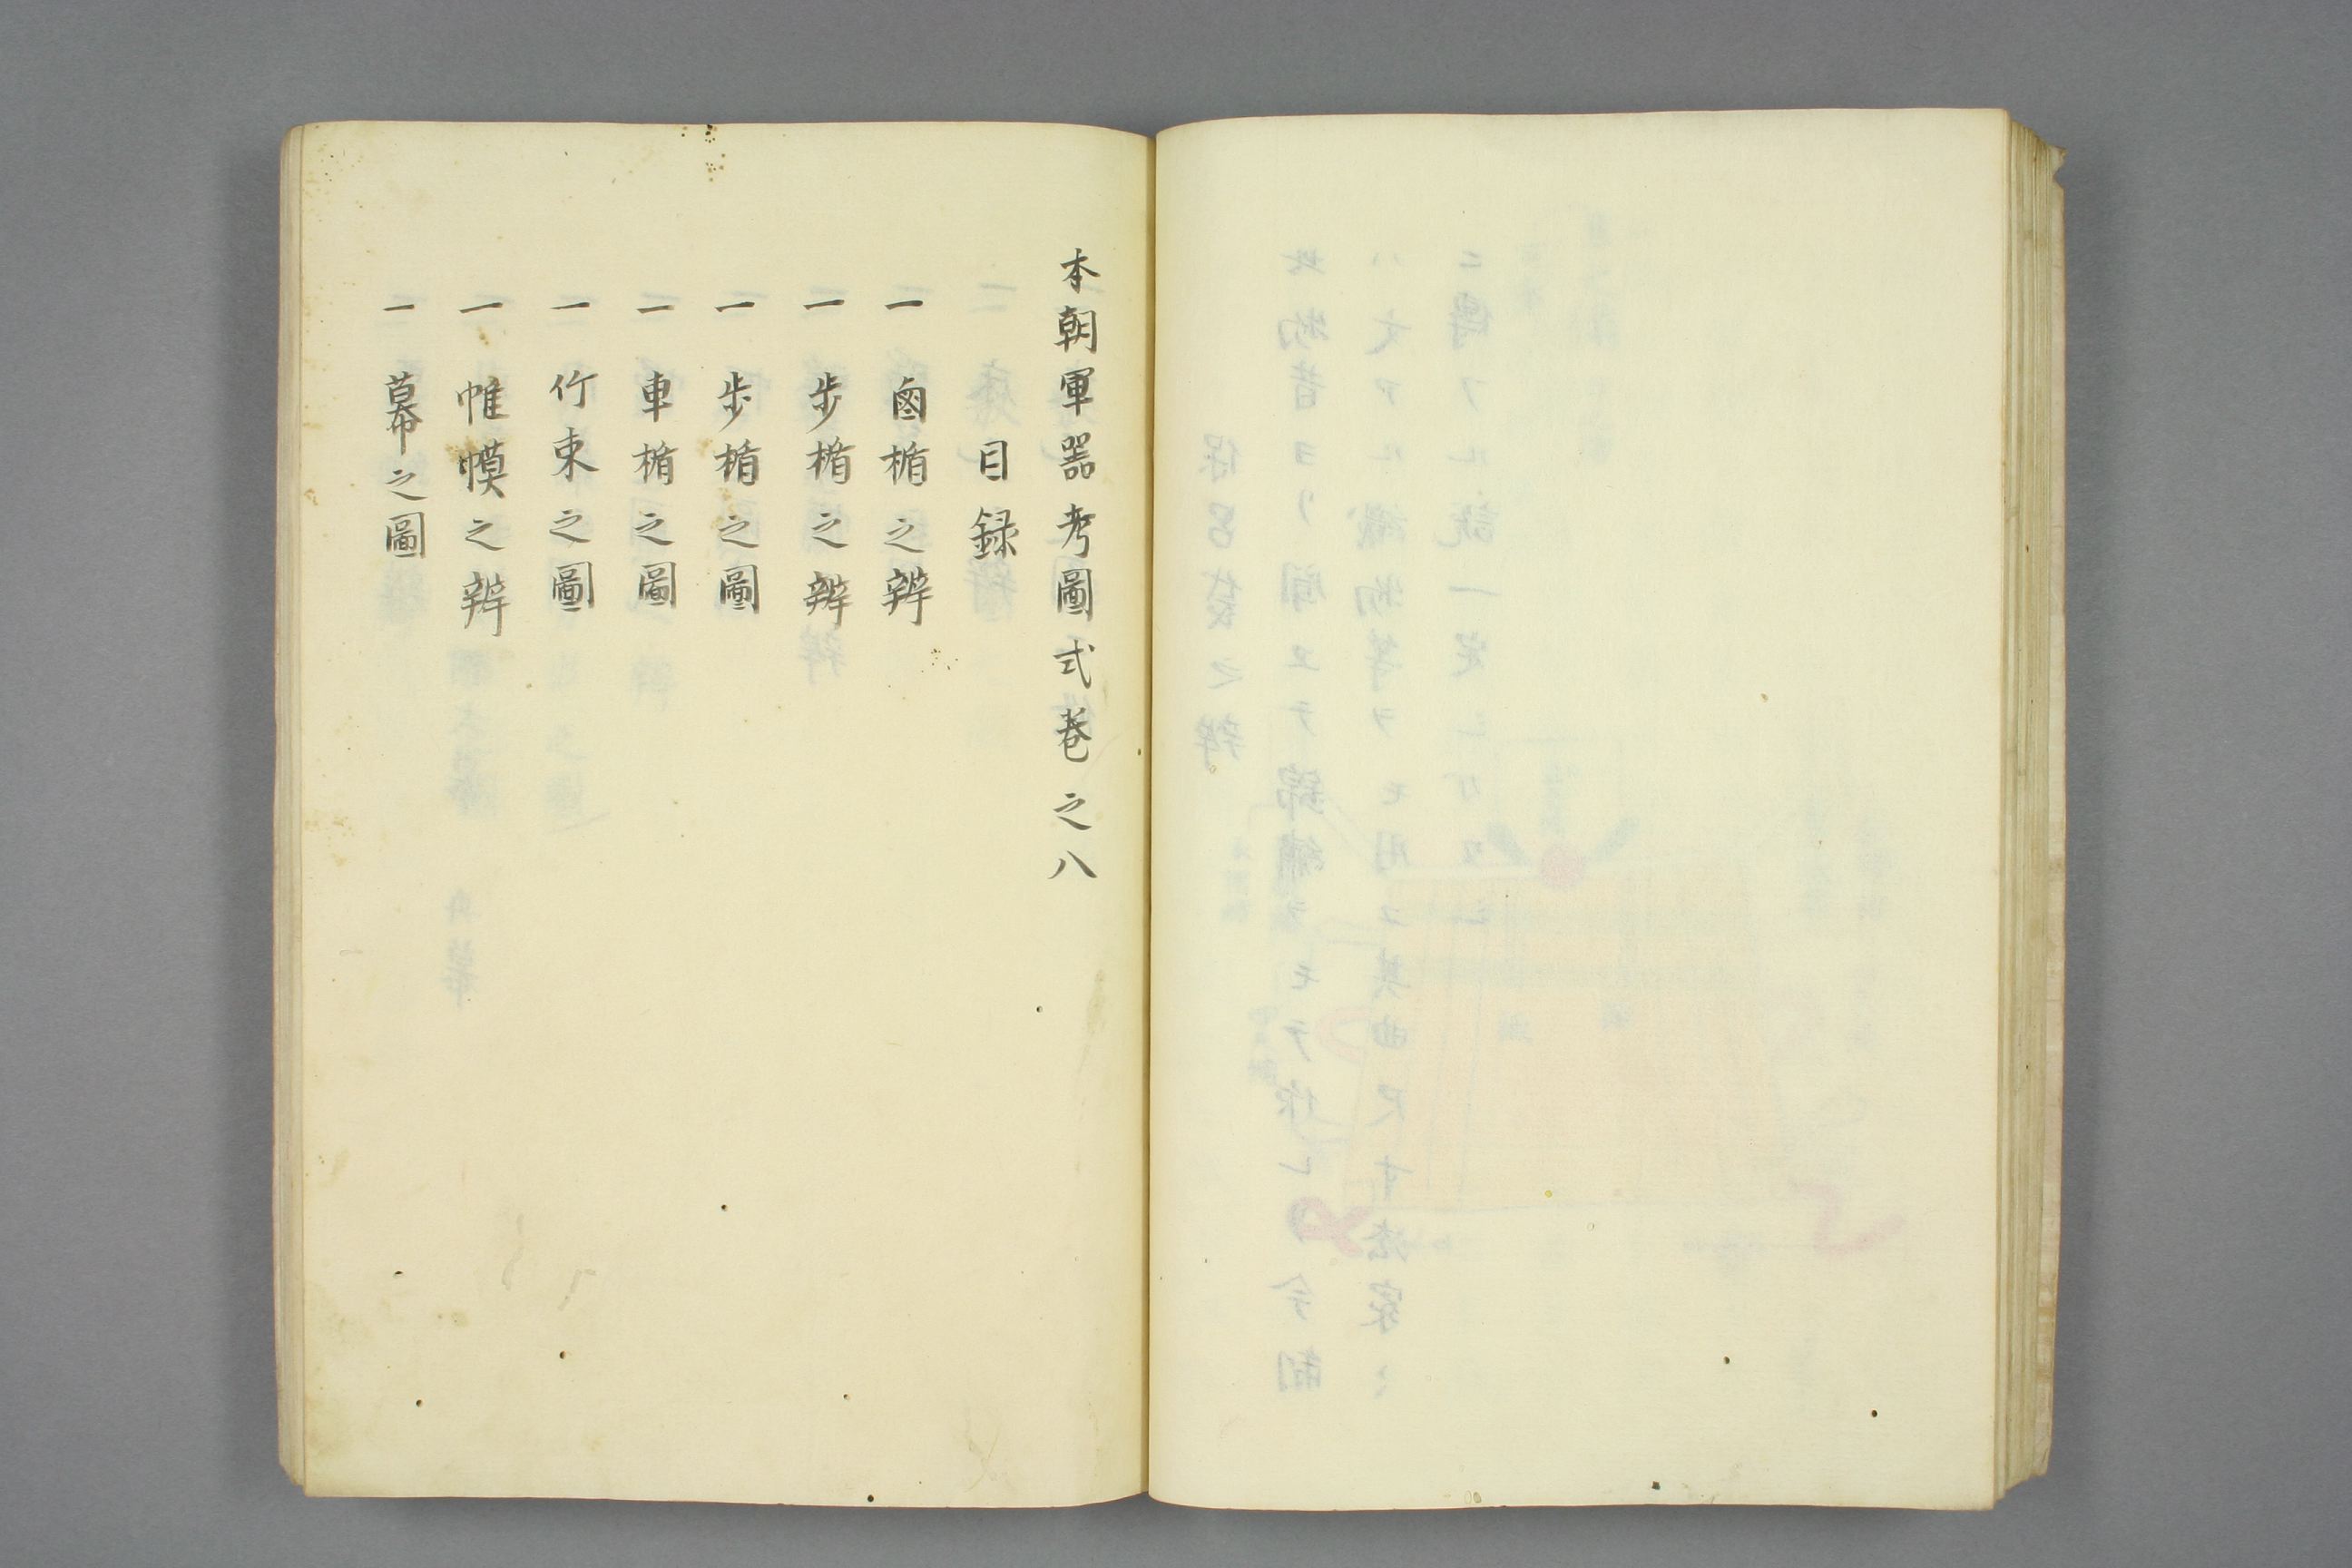 本朝軍器考圖式巻之八
目録
一 鹵楯之辨
一 歩楯之辨
一 歩楯之圖
一 車楯之圖
一 竹束之圖
一 帷幙之辨
一 幕之圖